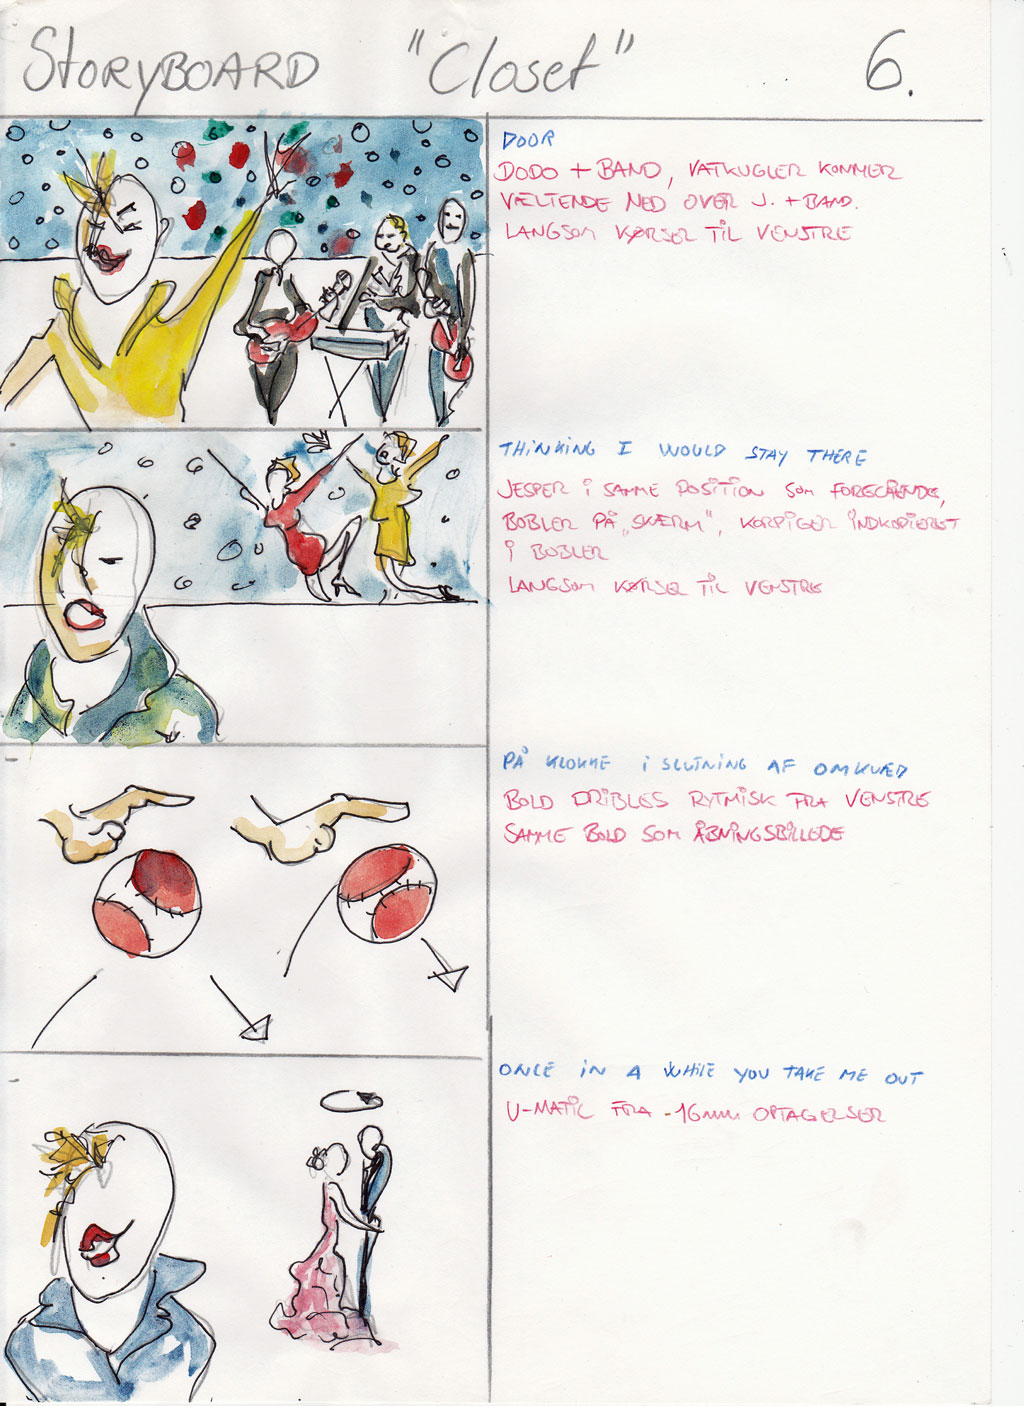 STORYBOARD "Closet" 6.
DOOR
DODO + BAND, VATKUGLER KOMMER
VÆLTENDE NED OVER J. + BAND.
LANGSOM KØRSEL TIL VENSTRE
THINKING I WOULD STAY THERE
JESPER I SAMME POSITION SOM FOREGÅENDE,
BOBLER PÅ „SKÆRM", KORPIGER INDKOPIERET
I BOBLER
LANGSOM KØRSEL TIL VENSTRE
PÅ KLOKKE I SLUTNING AF OMKVÆD
BOLD DRIBLES RYTMISK FRA VENSTRE
SAMME BOLD SOM ÅBNINGSBILLEDE
ONCE IN A WHILE YOU TAKE ME OUT
U-MATIC FRA -16mm OPTAGELSER